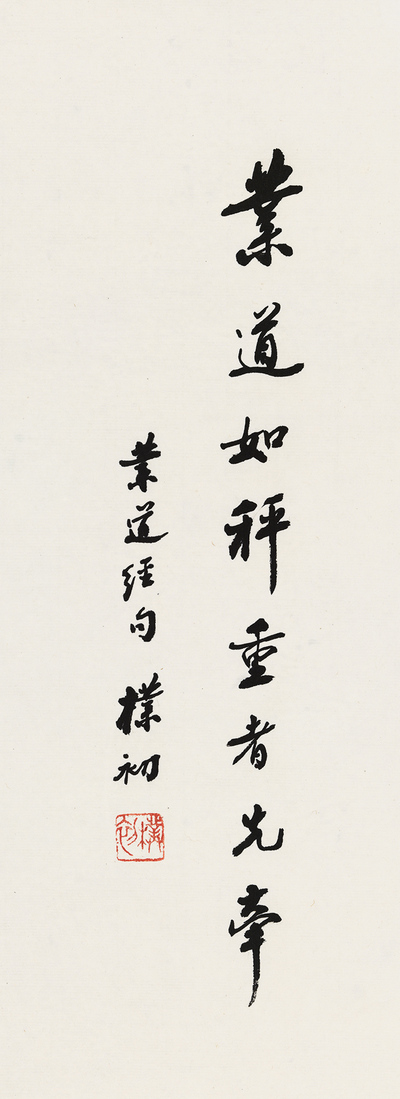 業道如秤重者先牽
業道經句 樸初
樸初